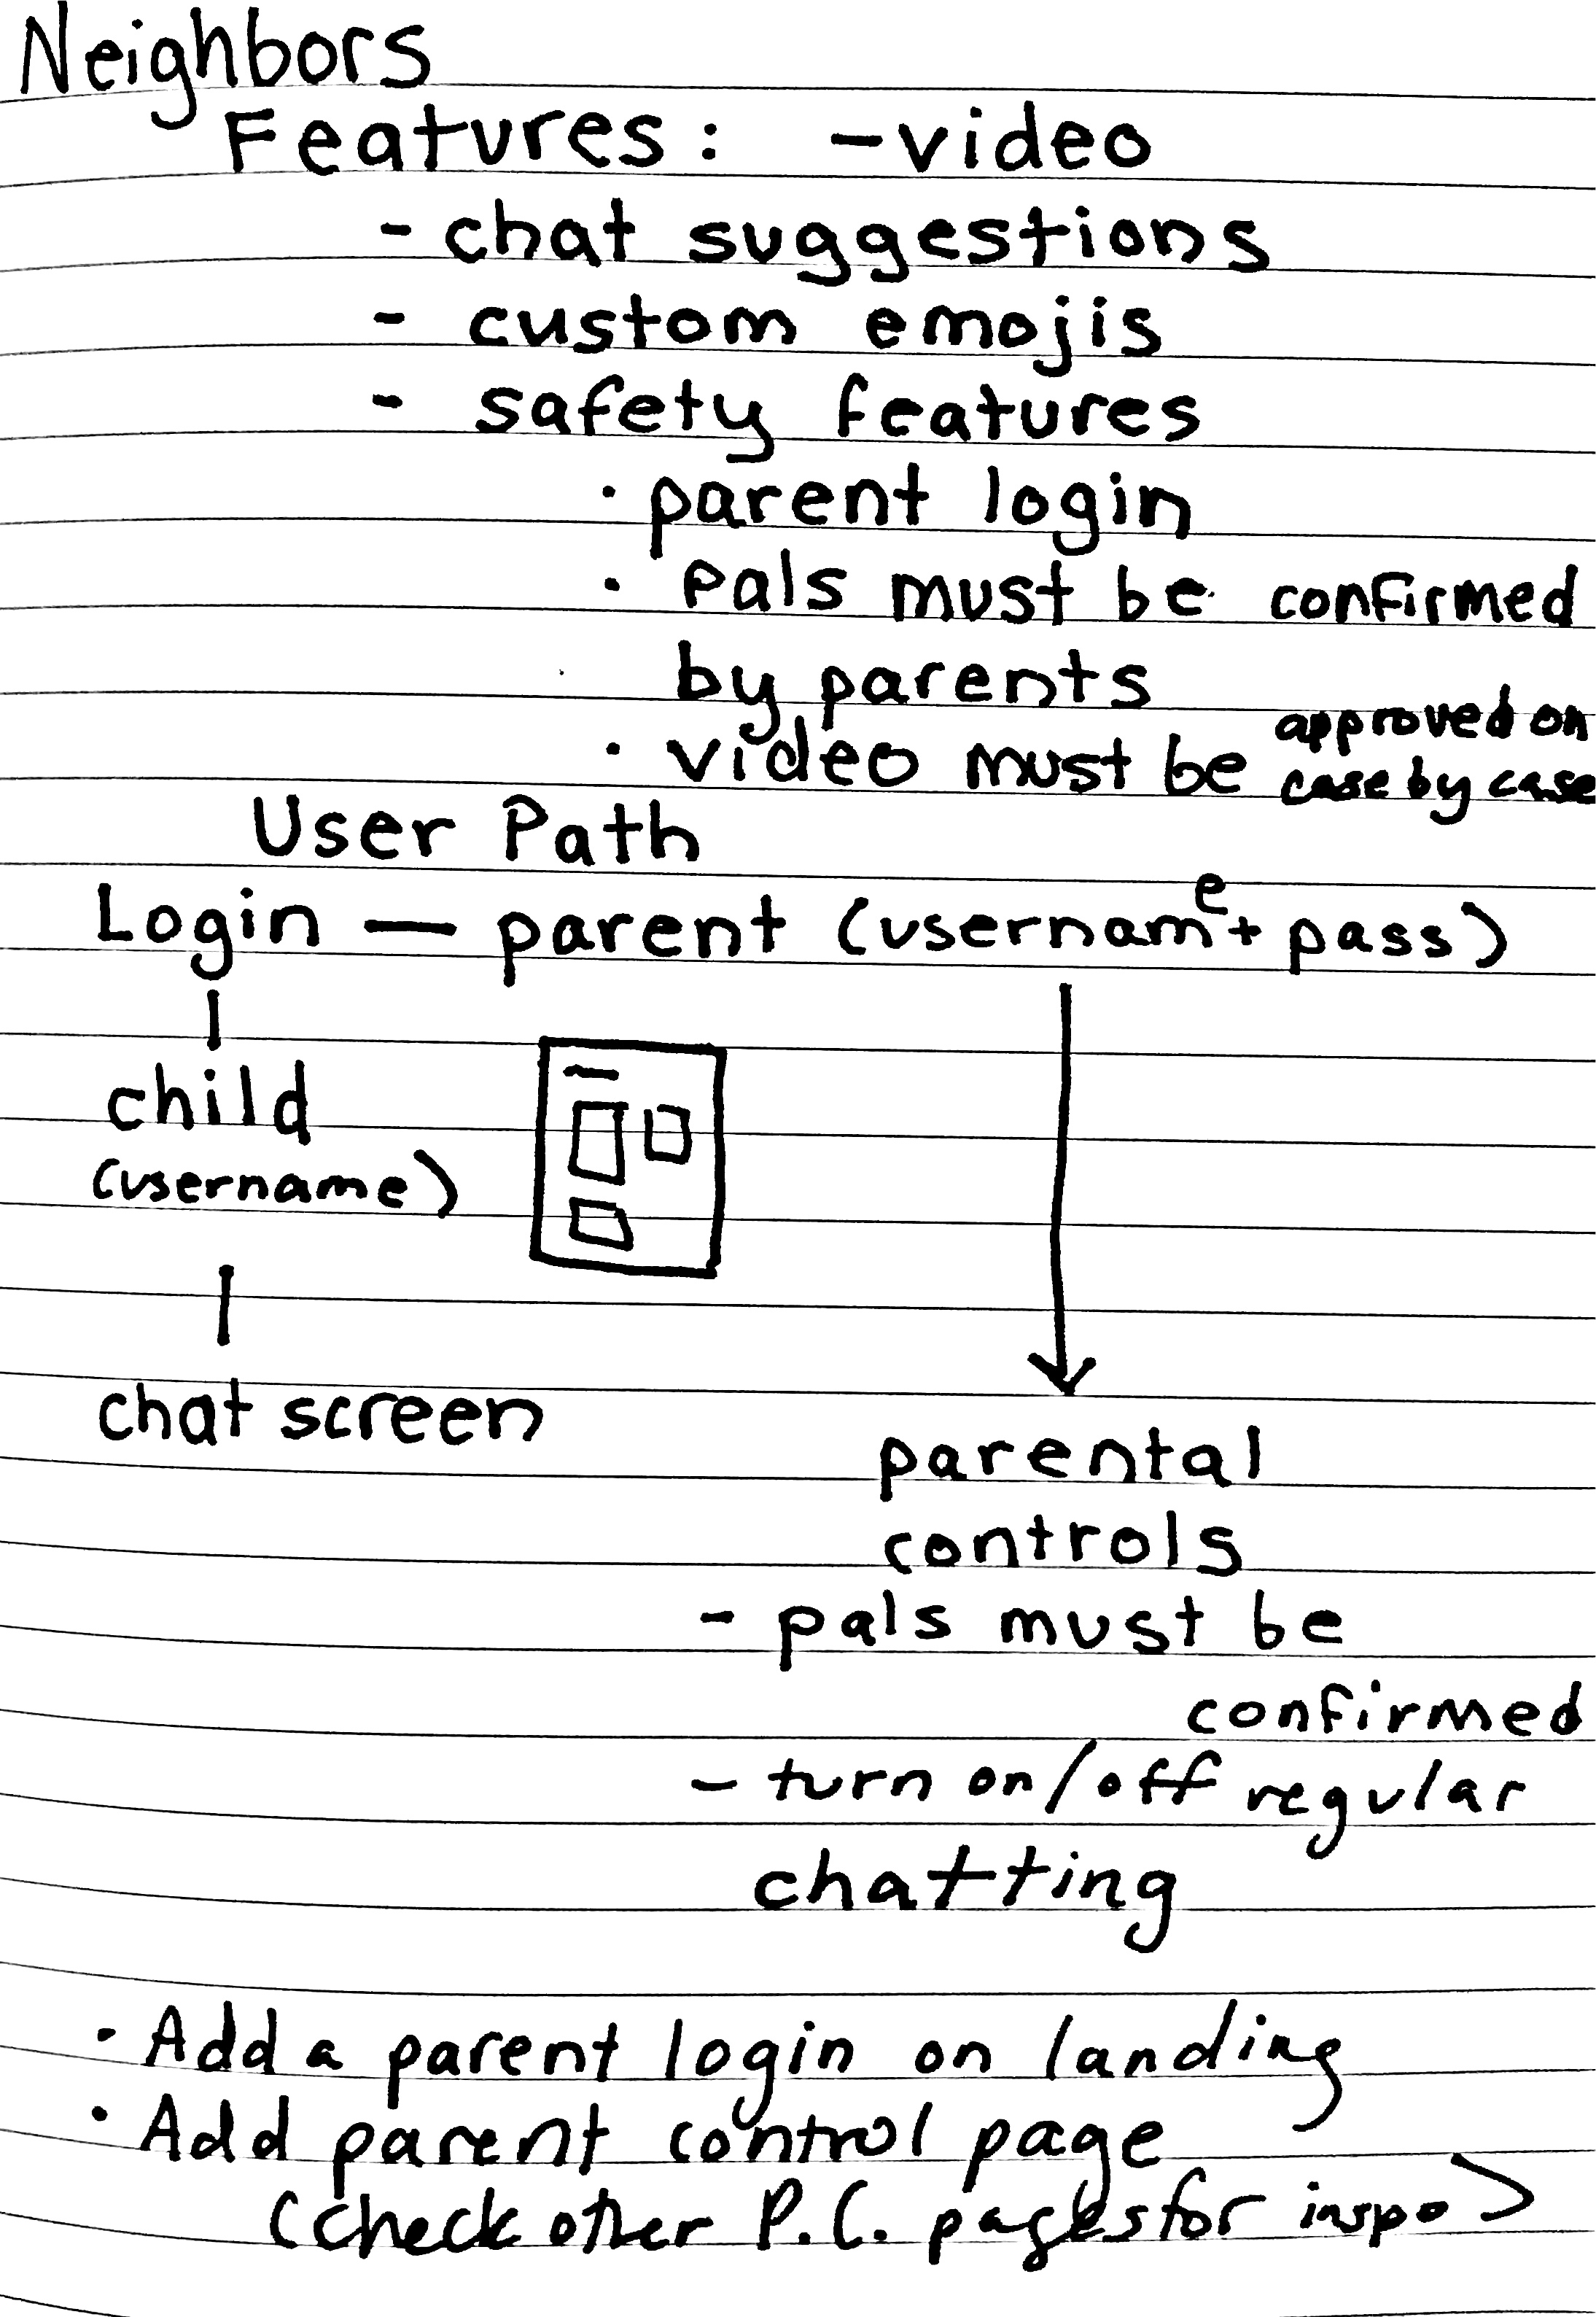 Neighbors
Features: - video
- chat suggestions
- custom emojis
- safety features
· parent login
· pals must be confirmed
by parents
· video must be approved on
case by case
User Path
Login — parent (username + pass)
child
(username)
chat screen
parental
controls
- pals must be
confirmed
- turn on/off regular
chatting
· Add a parent login on landing
· Add parent control page
(check other P.C. pages for inspo)